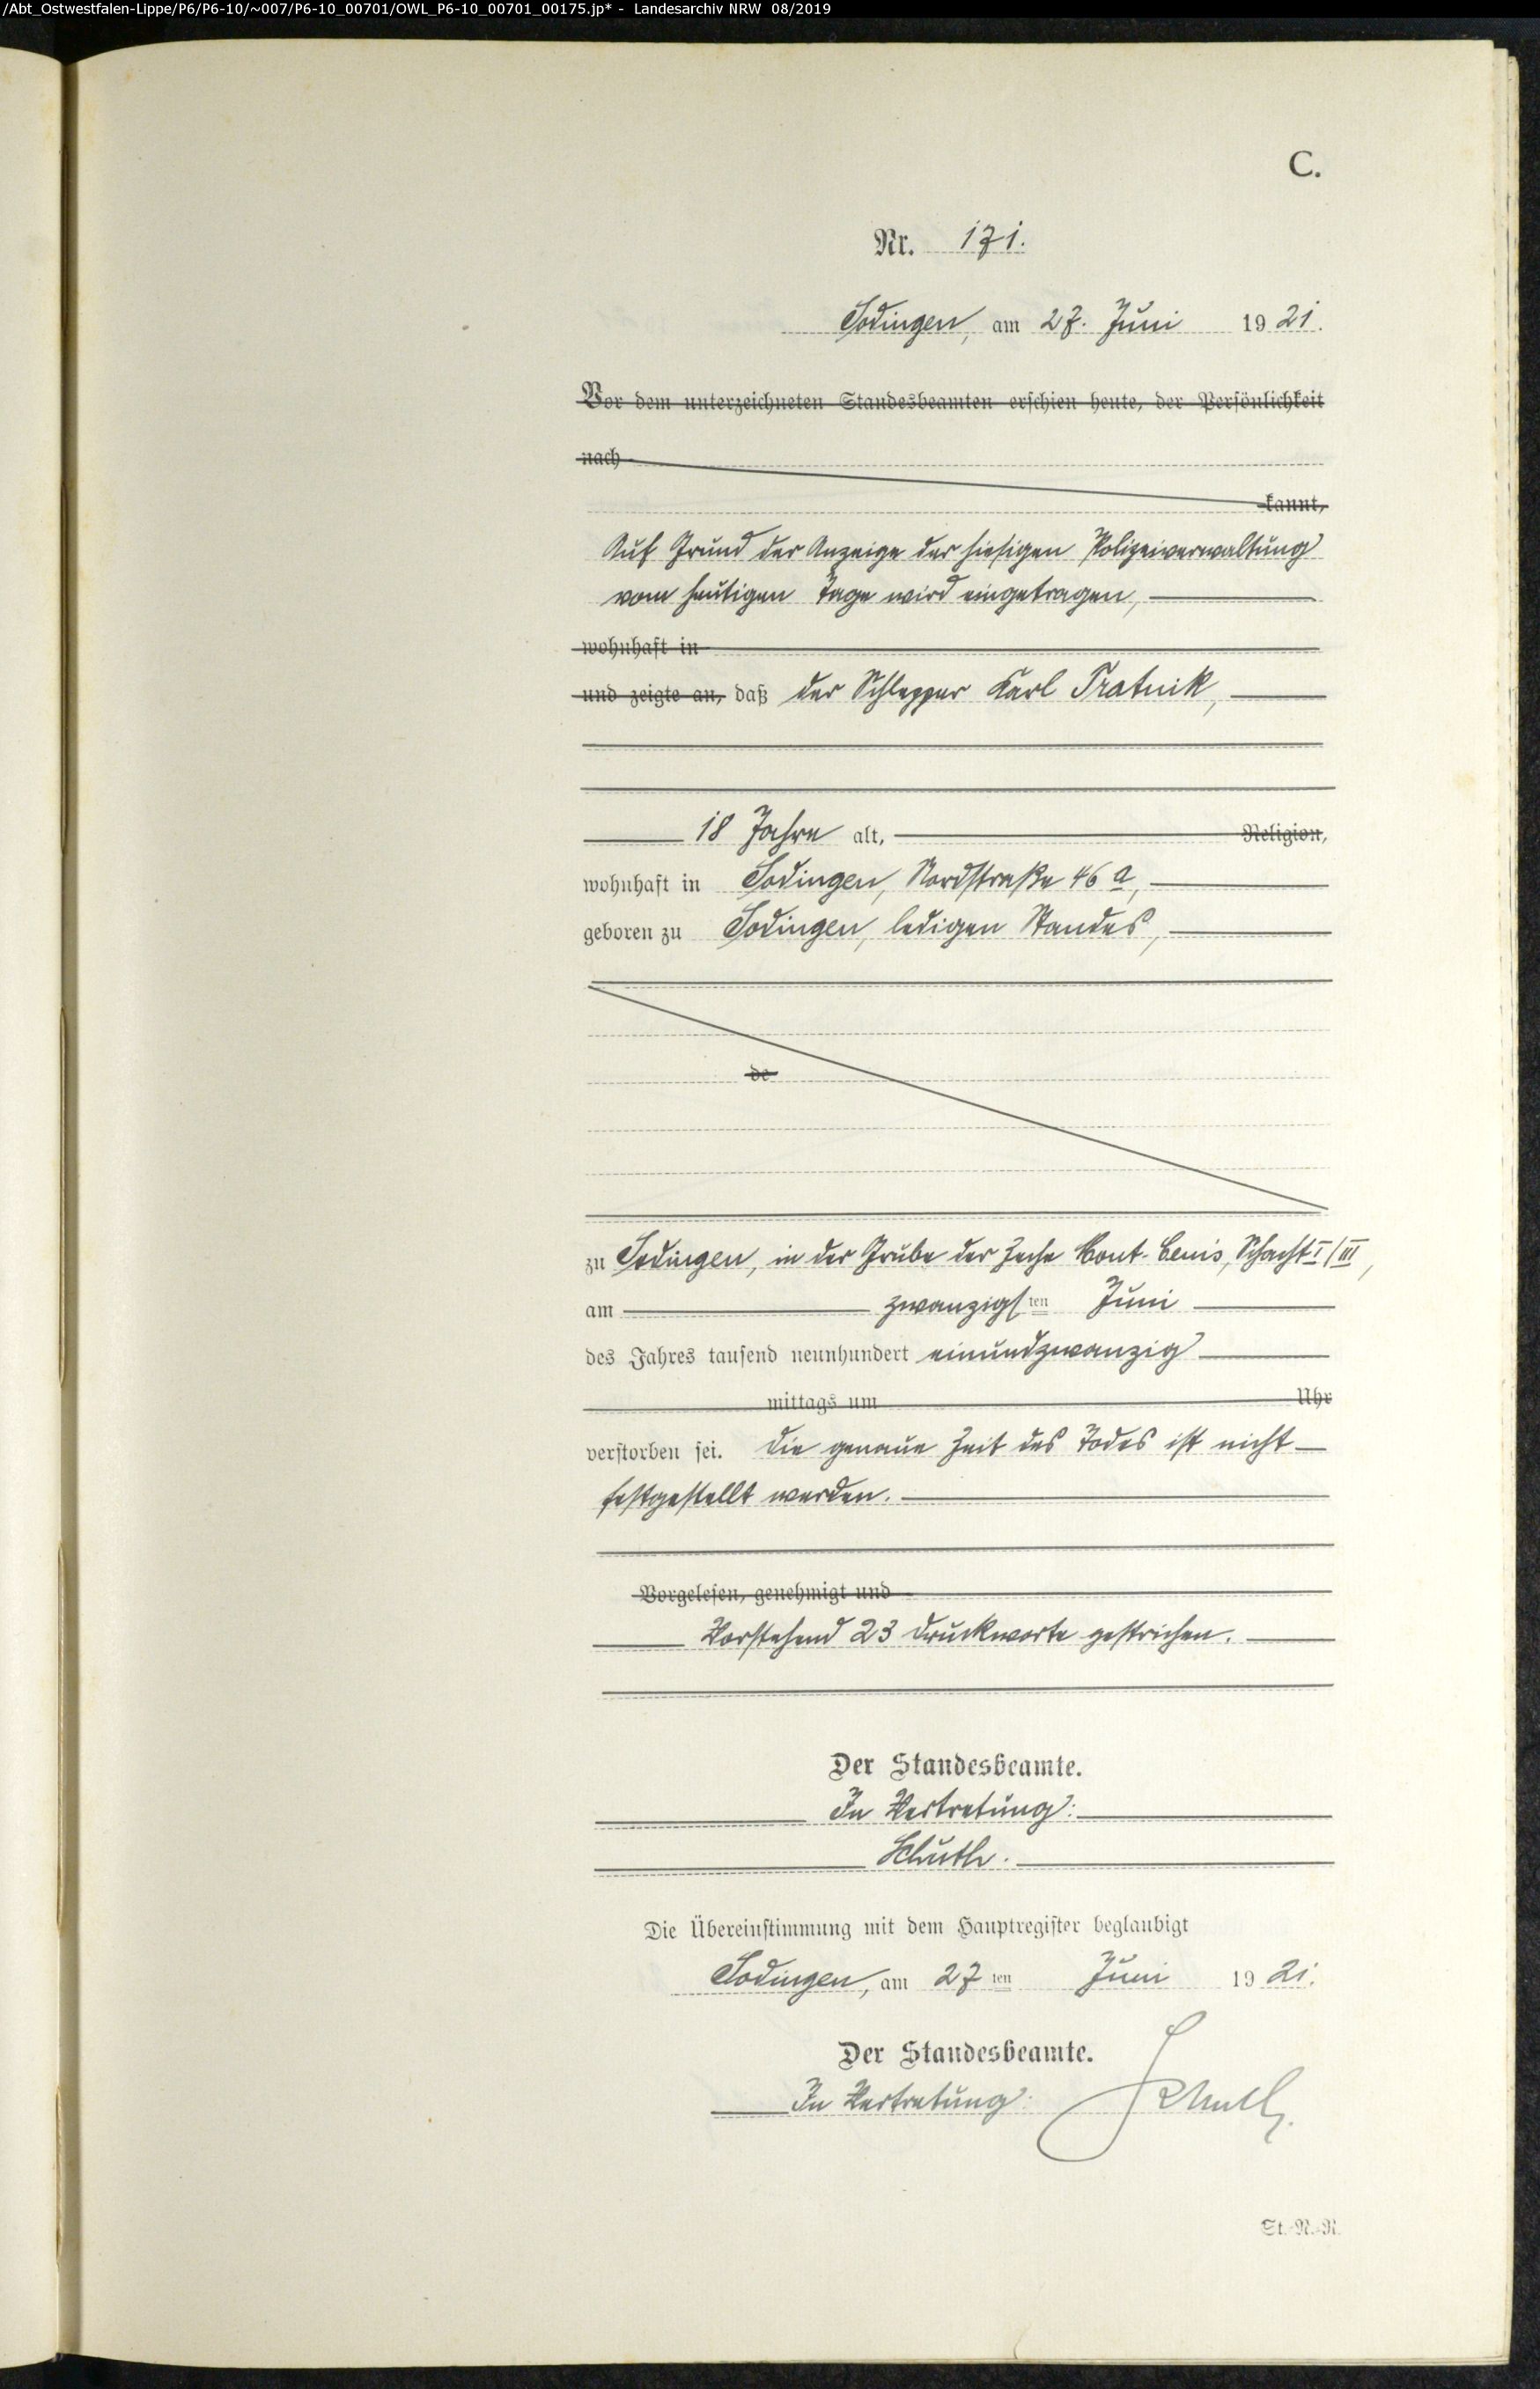 /Abt_Ostwestfalen-Lippe/P6/P6-10/~007/P6-10_00701/OWL_P6-10_00701_00175.jp* - Landesarchiv NRW 08/2019
C.
Nr. 171.
Sodingen, am 27. Juni 1921.
Vor dem unterzeichneten Standesbeamten erschien heute, der Persönlichkeit
nach
kannt,
Auf Grund der Anzeige der hiesigen Polizeiverwaltung
vom heutigen Tage wird eingetragen,
wohnhaft in
und zeigte an, daß der Schlepper Karl Tratnik,
18 Jahre alt, Religion,
wohnhaft in Sodingen, Nordstraße 46 a,
geboren zu Sodingen, ledigen Standes,
de
zu Sodingen, in der Grube der Zeche Mont-Cenis, Schacht I/III,
am zwanzigsten Juni
des Jahres tausend neunhundert einundzwanzig
mittags um Uhr
verstorben sei. Die genaue Zeit des Todes ist nicht
festgestellt worden.
Vorgelesen, genehmigt und
Vorstehend 23 Druckworte gestrichen.
Der Standesbeamte.
In Vertretung:
Schuth.
Die Übereinstimmung mit dem Hauptregister beglaubigt
Sodingen, am 27ten Juni 1921.
Der Standesbeamte.
In Vertretung: Schuth.
St.-N.-R.